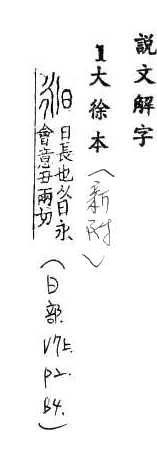 説文解字
1大徐本(新附)
昶 日長也从日永
會意丑兩切
(日部.V7上.P2.B4.)